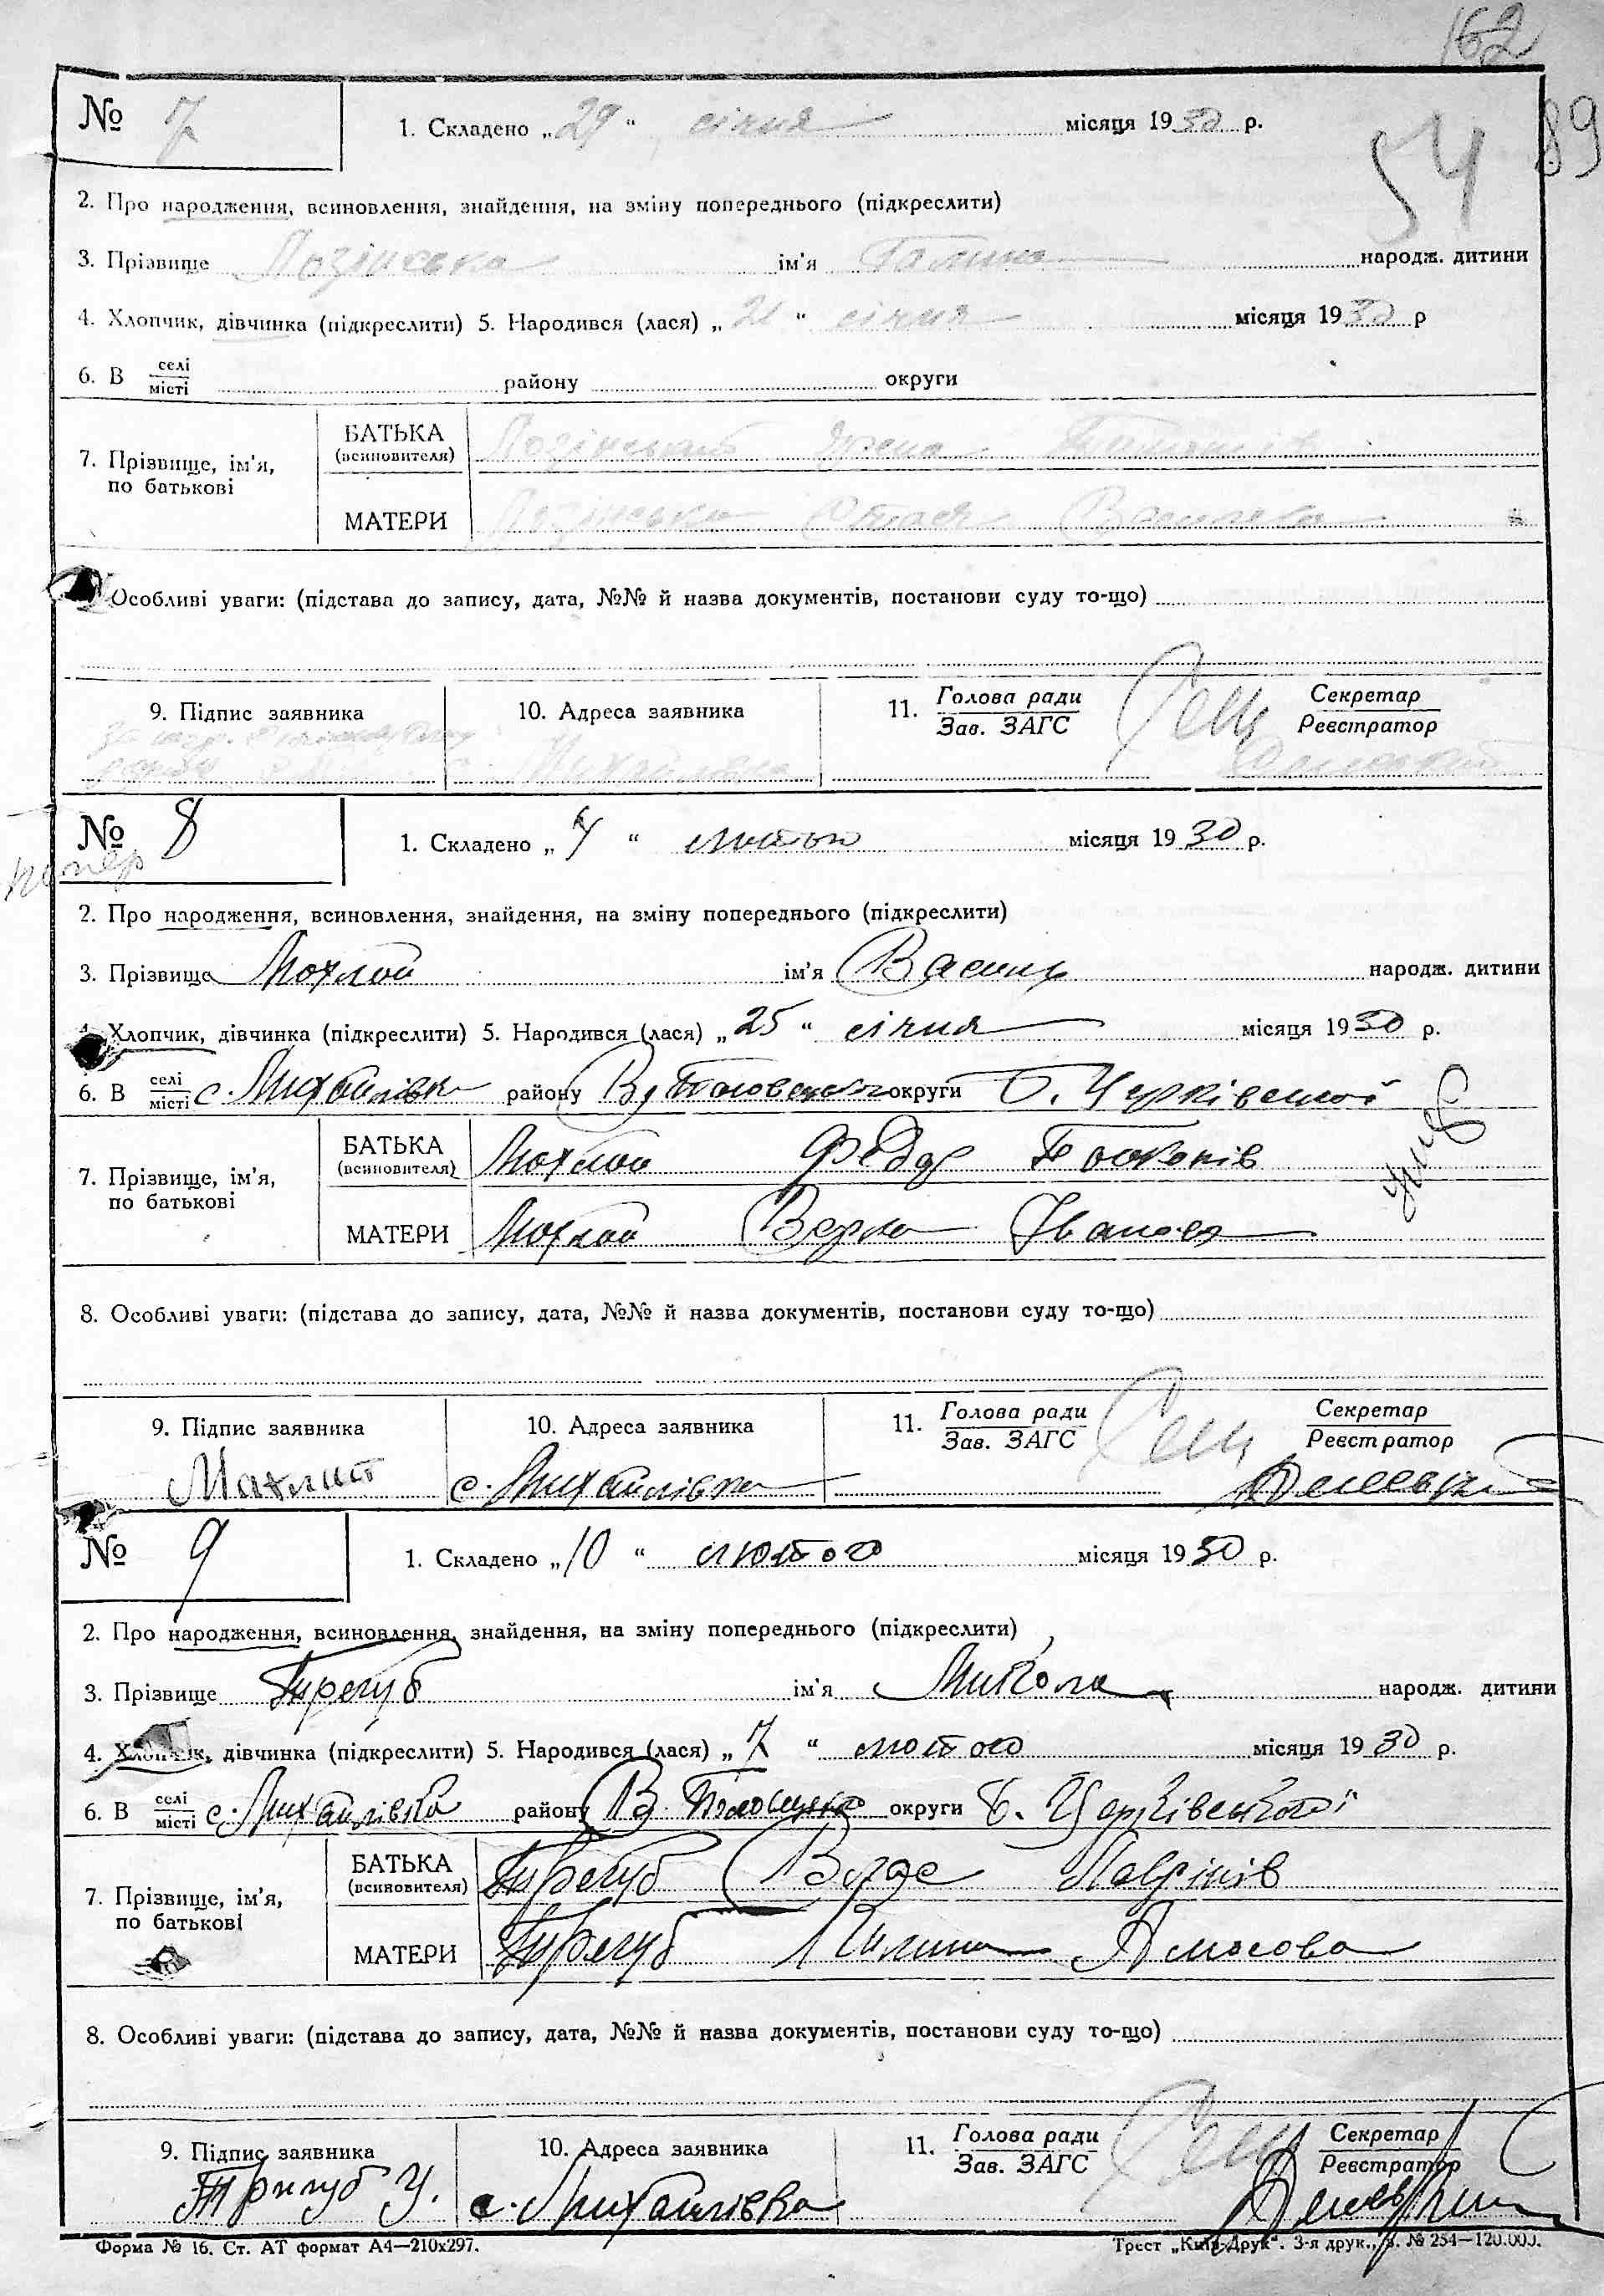 162
№ 7 1. Складено „29“ січня місяця 1930 р.
54 89
2. Про народження, всиновлення, знайдення, на зміну попереднього (підкреслити)
3. Прізвище Лозінська ім'я Галина народж. дитини
4. Хлопчик, дівчинка (підкреслити) 5. Народився (лася) „21“ січня місяця 1930 р
6. В селі/місті району округи
7. Прізвище, ім'я, по батькові
БАТЬКА (всиновителя) Лозінський
МАТЕРИ Лозінська Василева
Особливі уваги: (підстава до запису, дата, №№ й назва документів, постанови суду то-що)
9. Підпис заявника 10. Адреса заявника 11. Голова ради/Зав. ЗАГС Секретар/Реєстратор
Михайлівка
№ 8 1. Складено „4“ лютого місяця 1930 р.
помер
2. Про народження, всиновлення, знайдення, на зміну попереднього (підкреслити)
3. Прізвище Мохлай ім'я Василь народж. дитини
4. Хлопчик, дівчинка (підкреслити) 5. Народився (лася) „25“ січня місяця 1930 р.
6. В селі/місті с. Михайлівка району В. Половецького округи Б. Церківської
7. Прізвище, ім'я, по батькові
БАТЬКА (всиновителя) Мохлай Федор
помер
МАТЕРИ Мохлай Вера Іванова
8. Особливі уваги: (підстава до запису, дата, №№ й назва документів, постанови суду то-що)
9. Підпис заявника 10. Адреса заявника 11. Голова ради/Зав. ЗАГС Секретар/Реєстратор
с. Михайлівка
№ 9 1. Складено „10“ лютого місяця 1930 р.
2. Про народження, всиновлення, знайдення, на зміну попереднього (підкреслити)
3. Прізвище Трегуб ім'я Микола народж. дитини
4. Хлопчик, дівчинка (підкреслити) 5. Народився (лася) „7“ лютого місяця 1930 р.
6. В селі/місті с. Михайлівка району В. Половецько округи Б. Церківської
7. Прізвище, ім'я, по батькові
БАТЬКА (всиновителя) Трегуб Влас
МАТЕРИ Трегуб Амосова
8. Особливі уваги: (підстава до запису, дата, №№ й назва документів, постанови суду то-що)
9. Підпис заявника 10. Адреса заявника 11. Голова ради/Зав. ЗАГС Секретар/Реєстратор
Тригуб У. с. Михайлівка
Форма № 16. Ст. АТ формат А4—210х297. Трест „Київ-Друк“. 3-я друк., З. № 254—120.000.